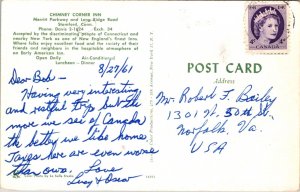 CHIMNEY CORNER INN
Merritt Parkway and Long Ridge Road
Stamford, Conn.
Phone: Davis 2-1624 Exit 34
Accepted by the discriminating people of Connecticut and
nearby New York as one of New England's finest Inns.
Where folks enjoy excellent food and the variety of
Open Daily Air-Conditioned
Luncheon - Dinner
8/29/61
Dear Bob -
Having very interesting
and restful trip but the
more we see of Canada
the better we like home.
Taxes here are even worse
than ours.
Love
Lucy & Oscar
POST CARD
Address
Mr. Robert F. Bailey
1301 W. 50th St.
Norfolk, Va.
USA
CANADA